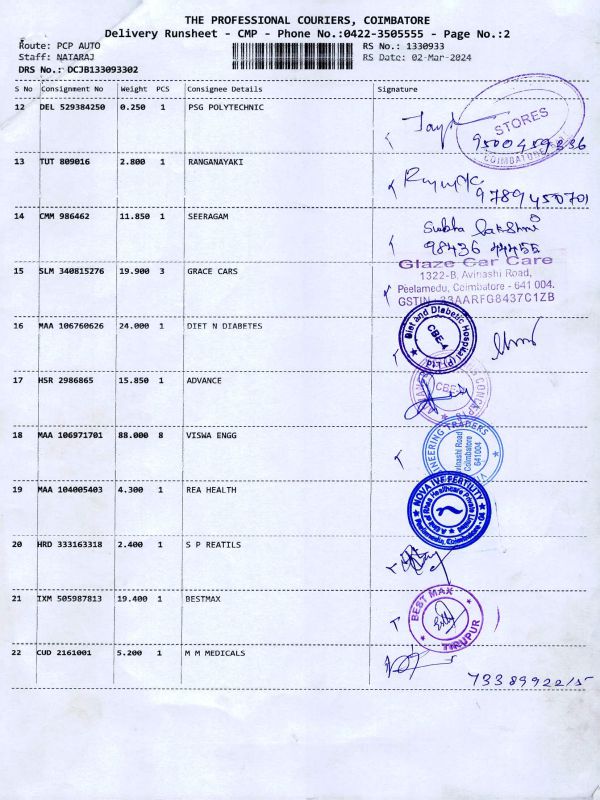 THE PROFESSIONAL COURIERS, COIMBATORE
Delivery Runsheet - CMP - Phone No.:0422-3505555 - Page No.:2
Route: PCP AUTO
RS No.: 1330933
Staff: NATARAJ
RS Date: 02-Mar-2024
DRS No.: DCJB133093302
S No Consignment No Weight PCS Consignee Details Signature
12 DEL 529384250 0.250 1 PSG POLYTECHNIC
STORES
COIMBATORE
9500459336
13 TUT 809016 2.800 1 RANGANAYAKI
9789450701
14 CMM 986462 11.850 1 SEERAGAM
Subha lakshmi
98436 44455
15 SLM 340815276 19.900 3 GRACE CARS
Glaze Car Care
1322-B, Avinashi Road,
Peelamedu, Coimbatore - 641 004.
GSTIN : 33AARFG8437C1ZB
16 MAA 106760626 24.000 1 DIET N DIABETES
Diet and Diabetic Hospital (P) Ltd
CBE-4
17 HSR 2986865 15.850 1 ADVANCE
CBE
18 MAA 106971701 88.000 8 VISWA ENGG
ENGINEERING TRADERS
Avinashi Road
Coimbatore
641004
19 MAA 104005403 4.300 1 REA HEALTH
NOVA IVF FERTILITY
Peelamedu, Coimbatore - 04
20 HRD 333163318 2.400 1 S P REATILS
21 IXM 505987813 19.400 1 BESTMAX
BEST MAX
TIRUPUR
22 CUD 2161001 5.200 1 M M MEDICALS